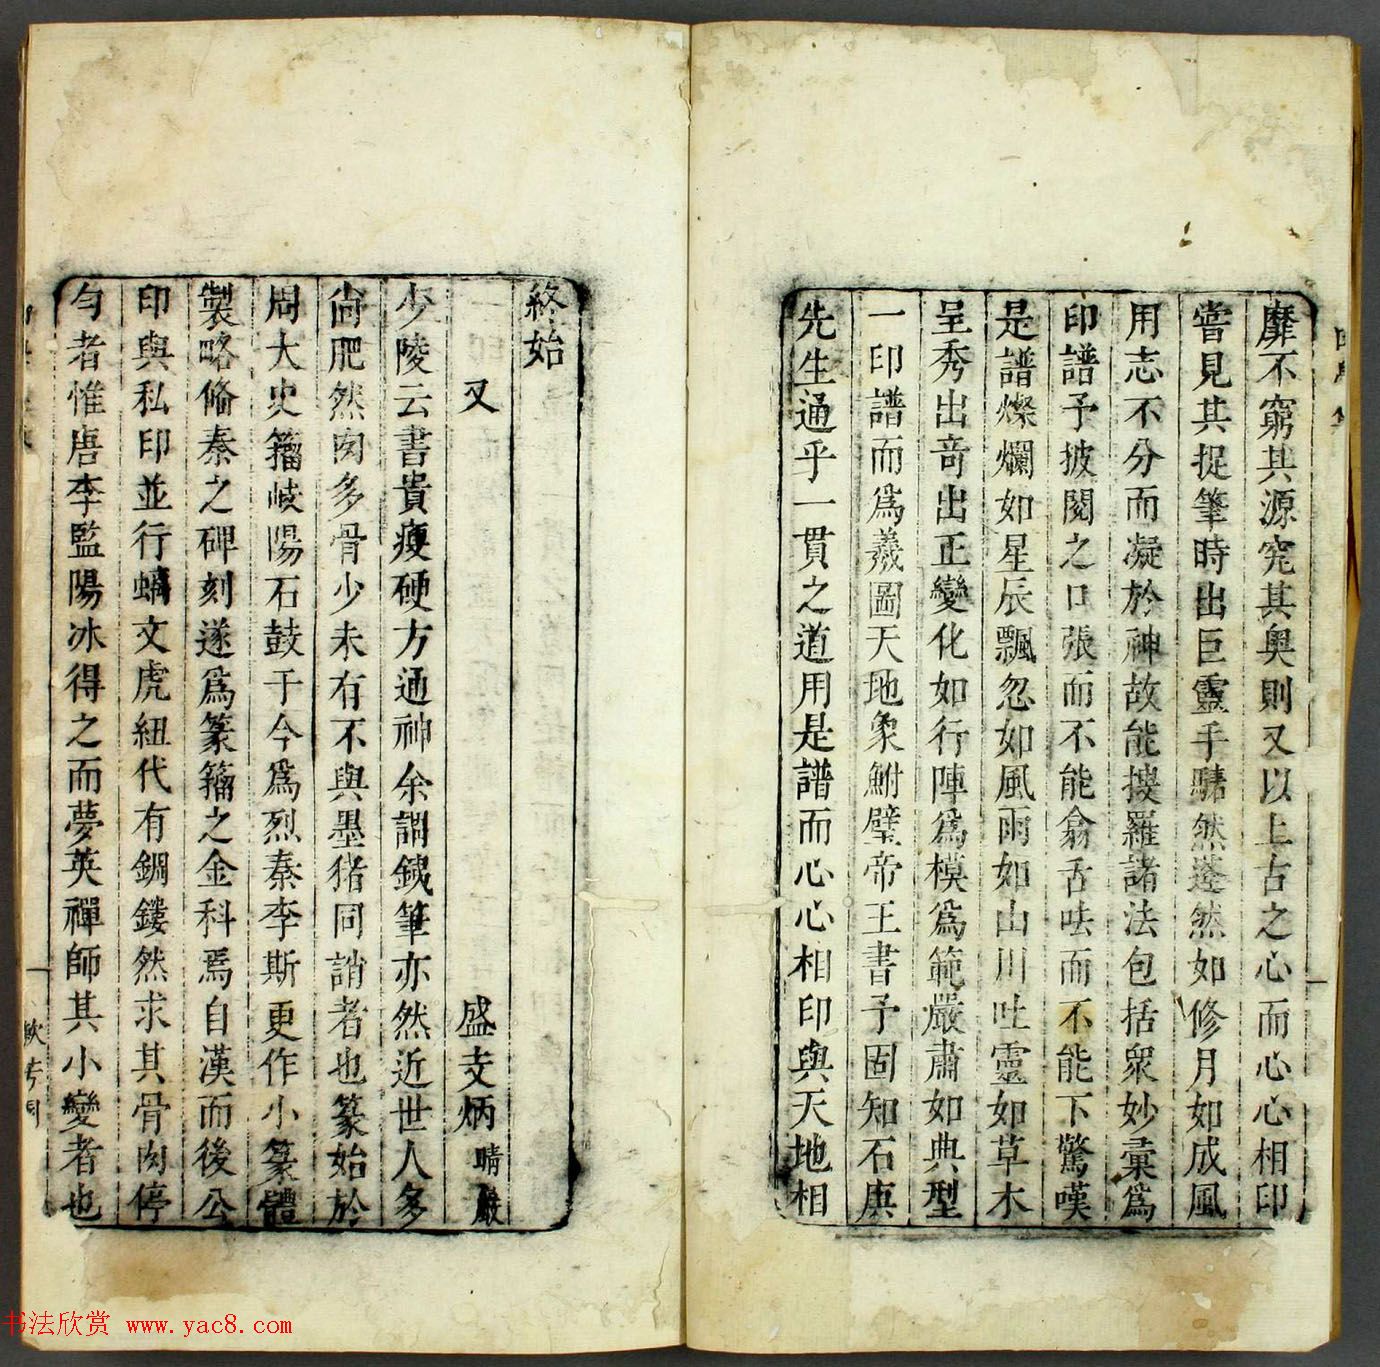 靡不窮其源究其奧則又以上古之心而心心相印
嘗見其捉筆時出巨靈手驣然蓬然如修月如成風
用志不分而凝於神故能搜羅諸法包括衆妙彙爲
印譜予披閱之口張而不能翕舌呿而不能下驚嘆
是譜燦爛如星辰飄忽如風雨如山川吐靈如草木
呈秀出奇出正變化如行陣爲模爲範嚴肅如典型
一印譜而爲羲圖天地象鮒璧帝王書予固知石庚
先生通乎一貫之道用是譜而心心相印與天地相
終始
又 盛支炳 晴巖
少陵云書貴瘦硬方通神余謂鐵筆亦然近世人多
尙肥然肉多骨少未有不與墨猪同誚者也篆始於
周大史籀岐陽石鼓于今爲烈秦李斯更作小篆體
製略偹秦之碑刻遂爲篆籀之金科焉自漢而後公
印與私印並行螭文虎紐代有鐧鏤然求其骨肉停
勻者惟唐李監陽冰得之而夢英禪師其小變者也
书法欣赏 www.yac8.com